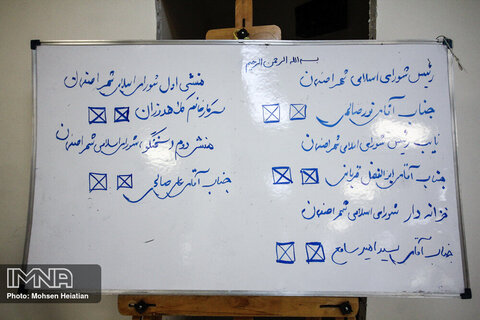 بسم الله الرحمن الرحیم
رئیس شورای اسلامی شهر اصفهان
جناب آقای نورصالحی
نایب رئیس شورای اسلامی شهر اصفهان
جناب آقای ابوالفضل قربانی
خزانه دار شورای اسلامی شهر اصفهان
جناب آقای سید امیر سامع
منشی اول شورای اسلامی شهر اصفهان
سرکار خانم
منشی دوم و سخنگوی شورای اسلامی شهر اصفهان
جناب آقای علی صالحی
IMNA
Photo: Mohsen Heiatian